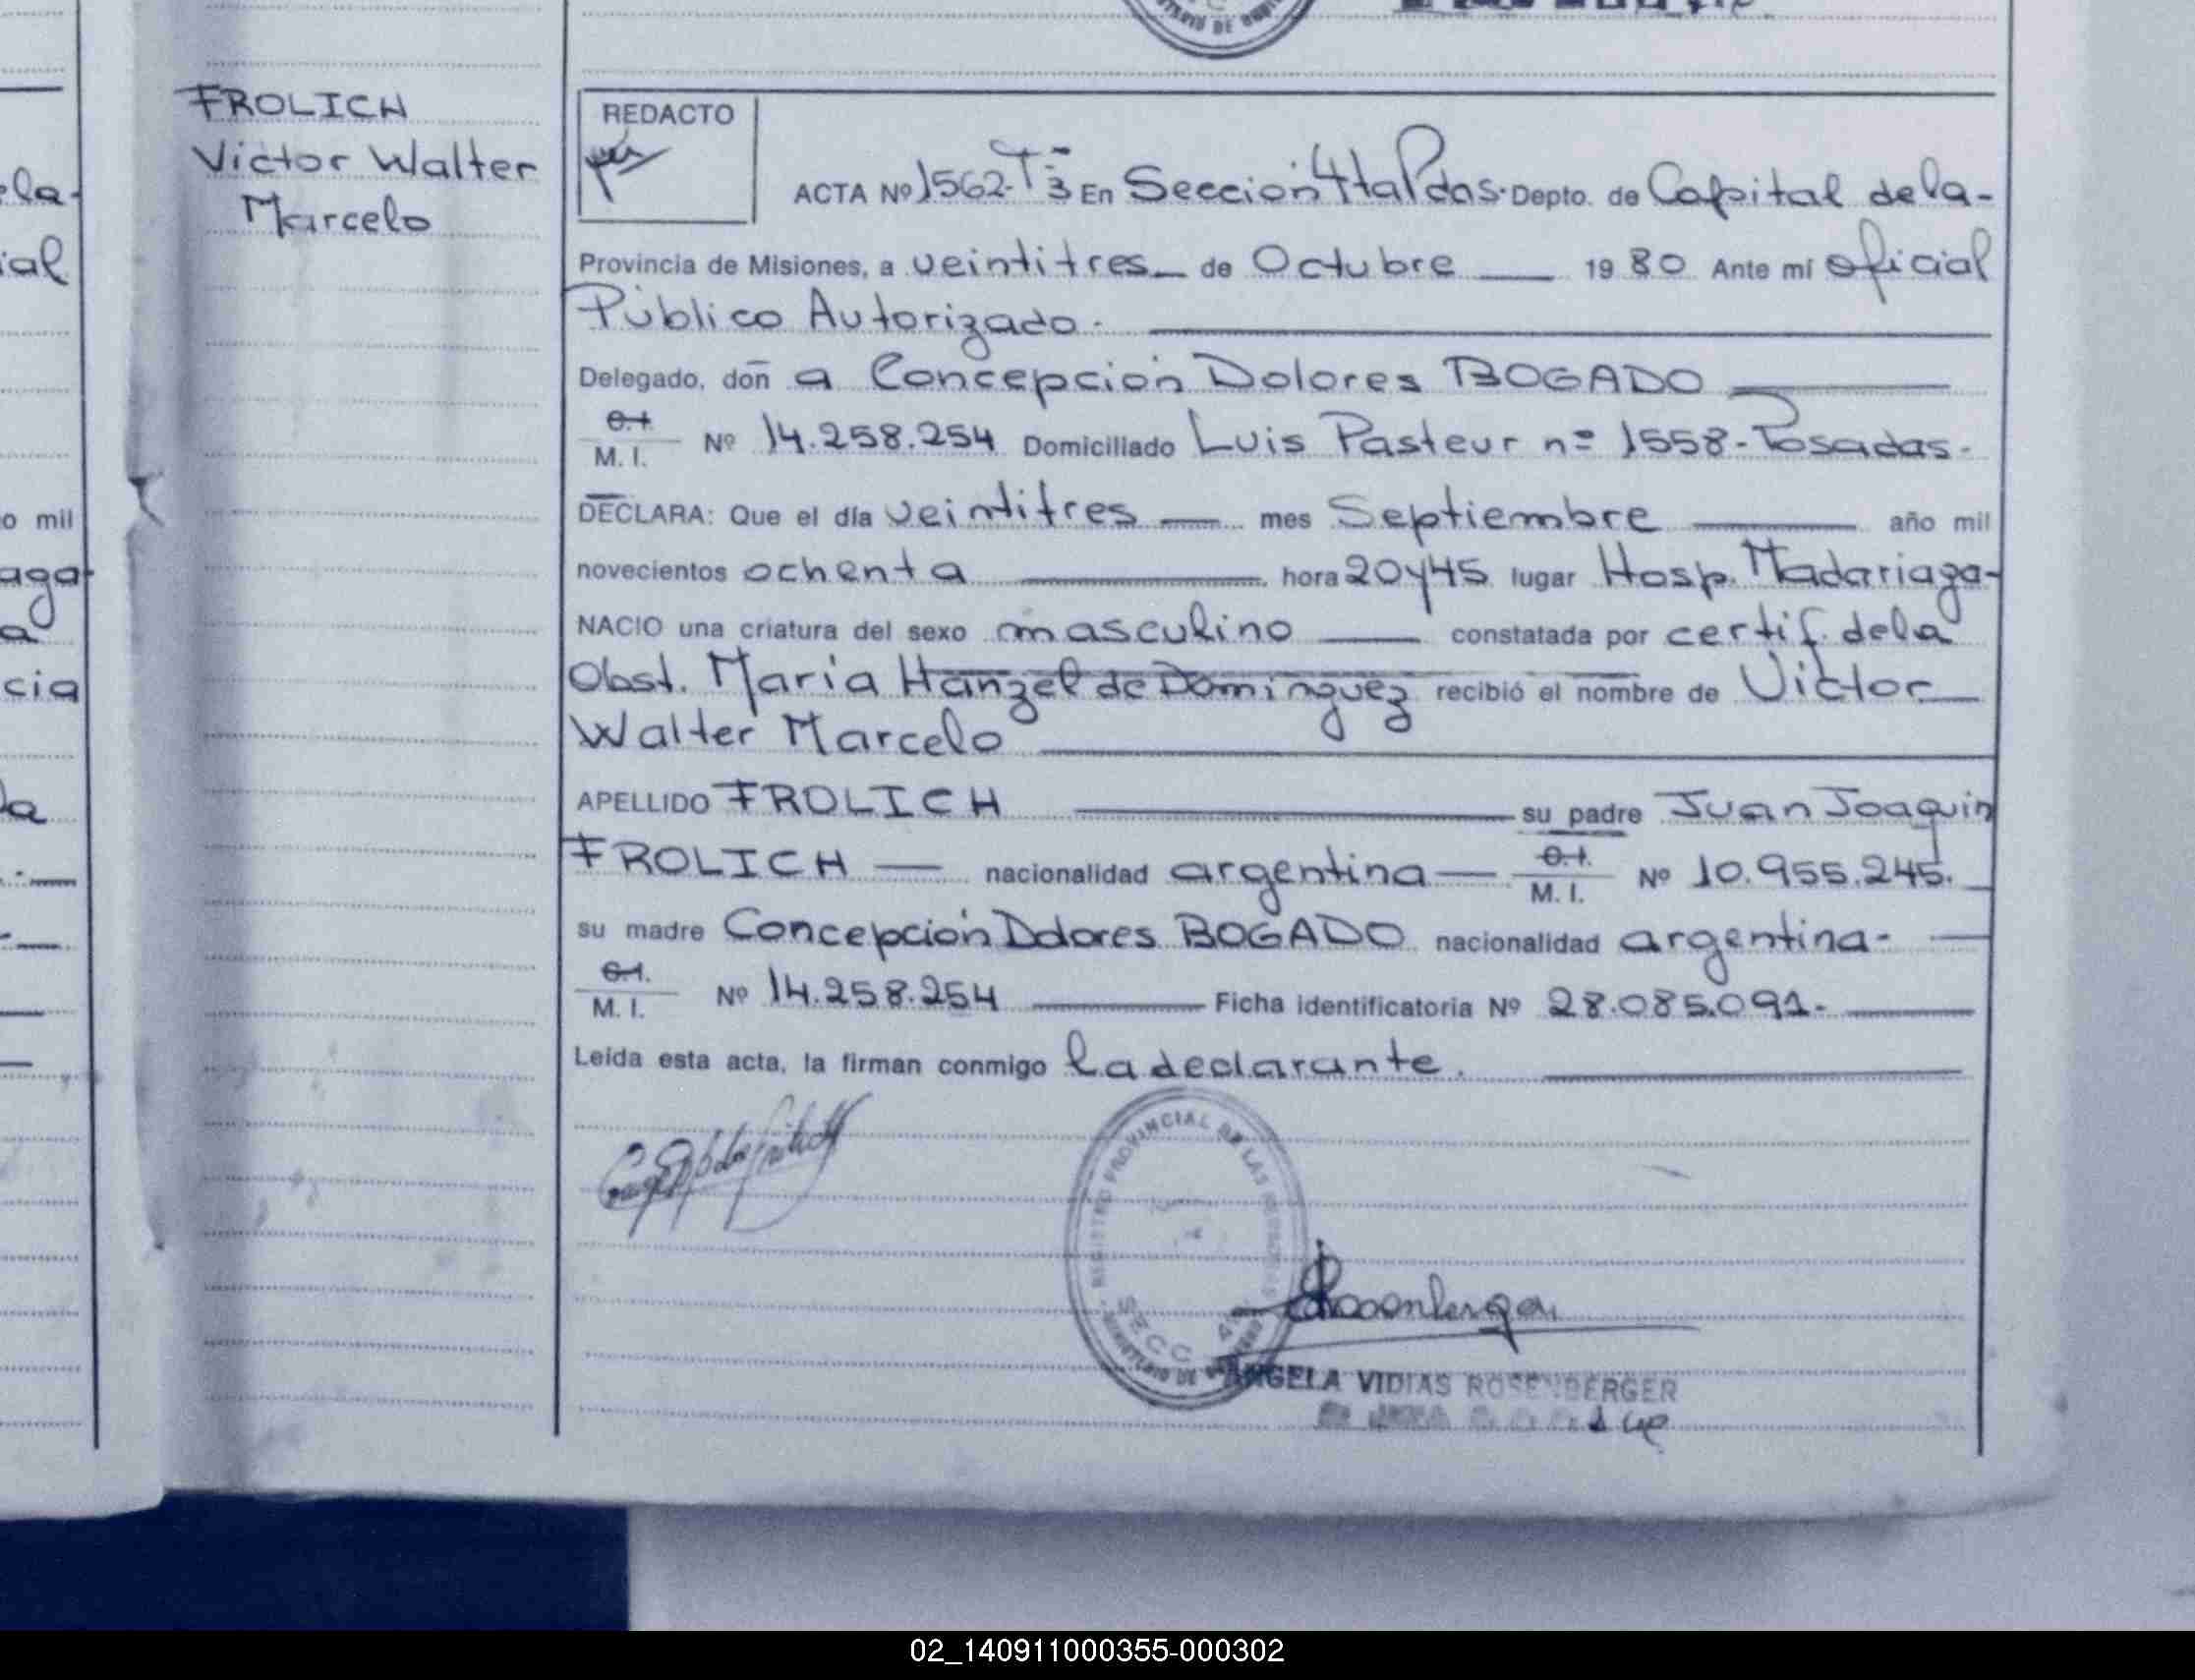 FROLICH
Victor Walter
Marcelo
ela-
ial
o mil
aga-
a
cia
la
REDACTO
ACTA Nº 1562-Tº3 En Sección 4ta Pdas. Depto. de Capital de la-
Provincia de Misiones, a veintitres de Octubre 19 80 Ante mí oficial
Público Autorizado.
Delegado, don a Concepción Dolores BOGADO
C.I.
M. I. Nº 14.258.254 Domiciliado Luis Pasteur nº 1558-Posadas-
DECLARA: Que el día veintitres mes Septiembre año mil
novecientos ochenta hora 20y45 lugar Hosp. Madariaga-
NACIO una criatura del sexo masculino constatada por certif. de la
Obst. María Hanzel de Dominguez recibió el nombre de Victor
Walter Marcelo
APELLIDO FROLICH su padre Juan Joaquin
FROLICH nacionalidad argentina C.I.
M. I. Nº 10.955.245.
su madre Concepción Dolores BOGADO nacionalidad argentina-
C.I.
M. I. Nº 14.258.254 Ficha identificatoria Nº 28.085.091-
Leída esta acta, la firman conmigo la declarante.
REGISTRO PROVINCIAL DE LAS PERSONAS
SECC 4
MINISTERIO DE GOBIERNO
Rosenberger
ANGELA VIDIAS ROSENBERGER
02_140911000355-000302